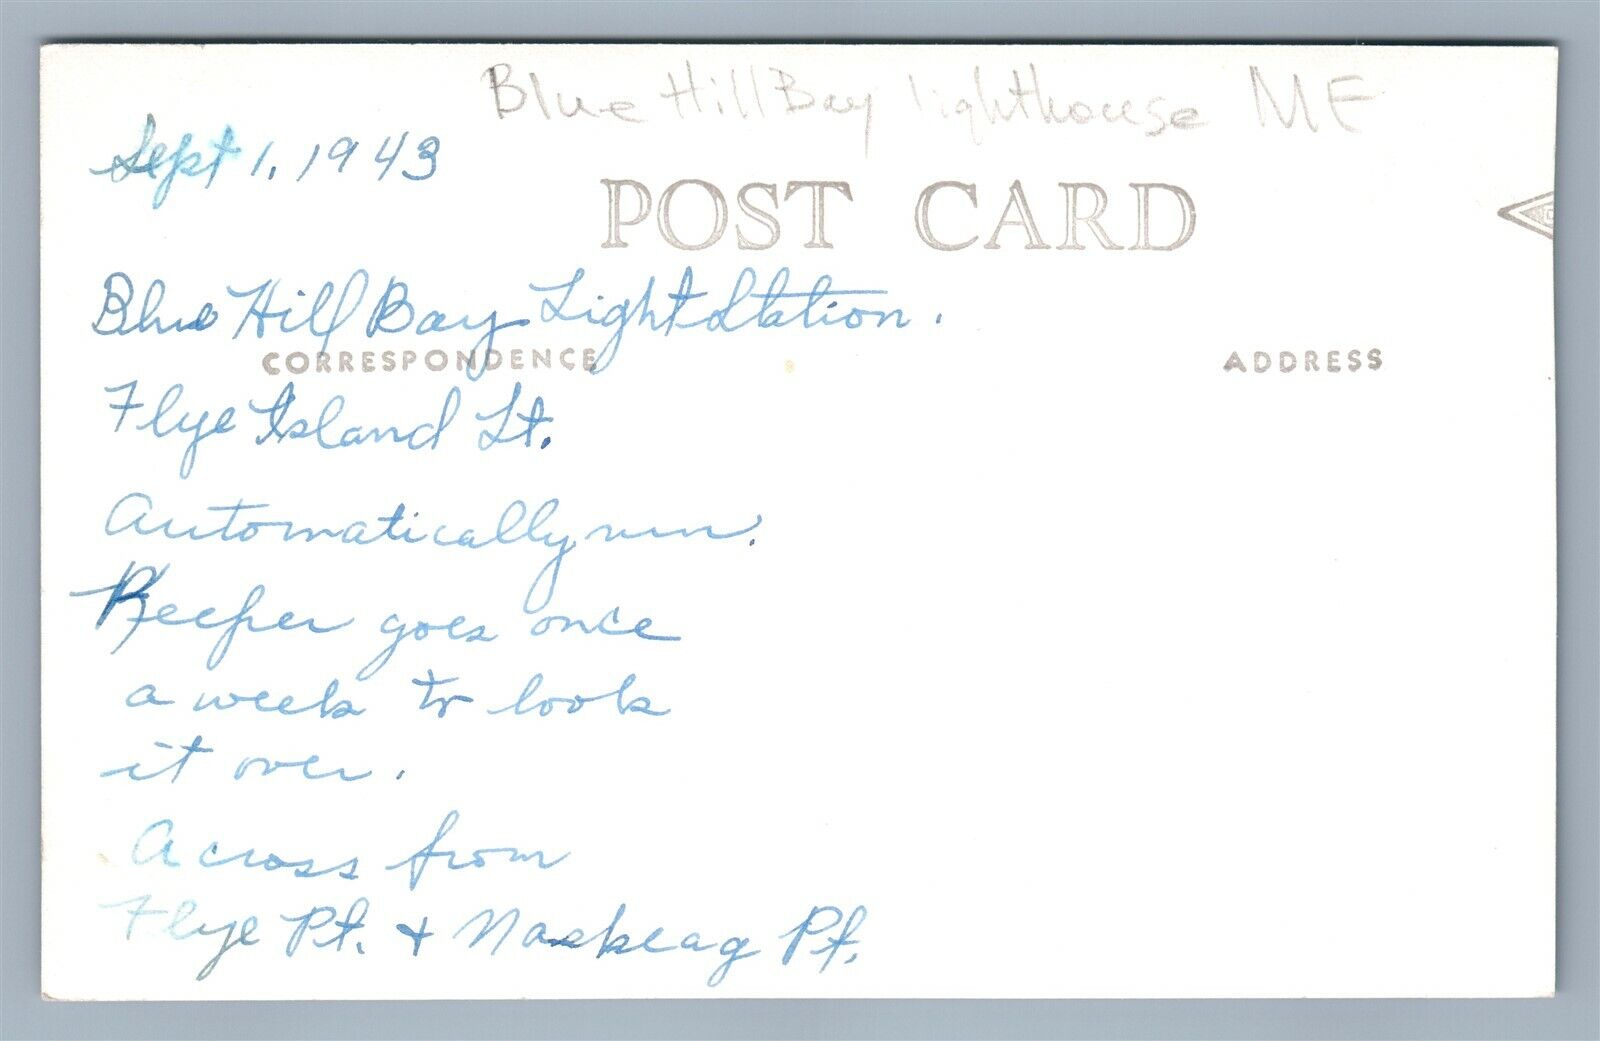 Blue Hill Bay lighthouse ME
Sept 1, 1943
POST CARD
Blue Hill Bay Light Station.
CORRESPONDENCE
ADDRESS
Flye Island Lt.
Automatically run.
Keeper goes once
a week to look
it over.
Across from
Flye Pt. + Naskeag Pt.